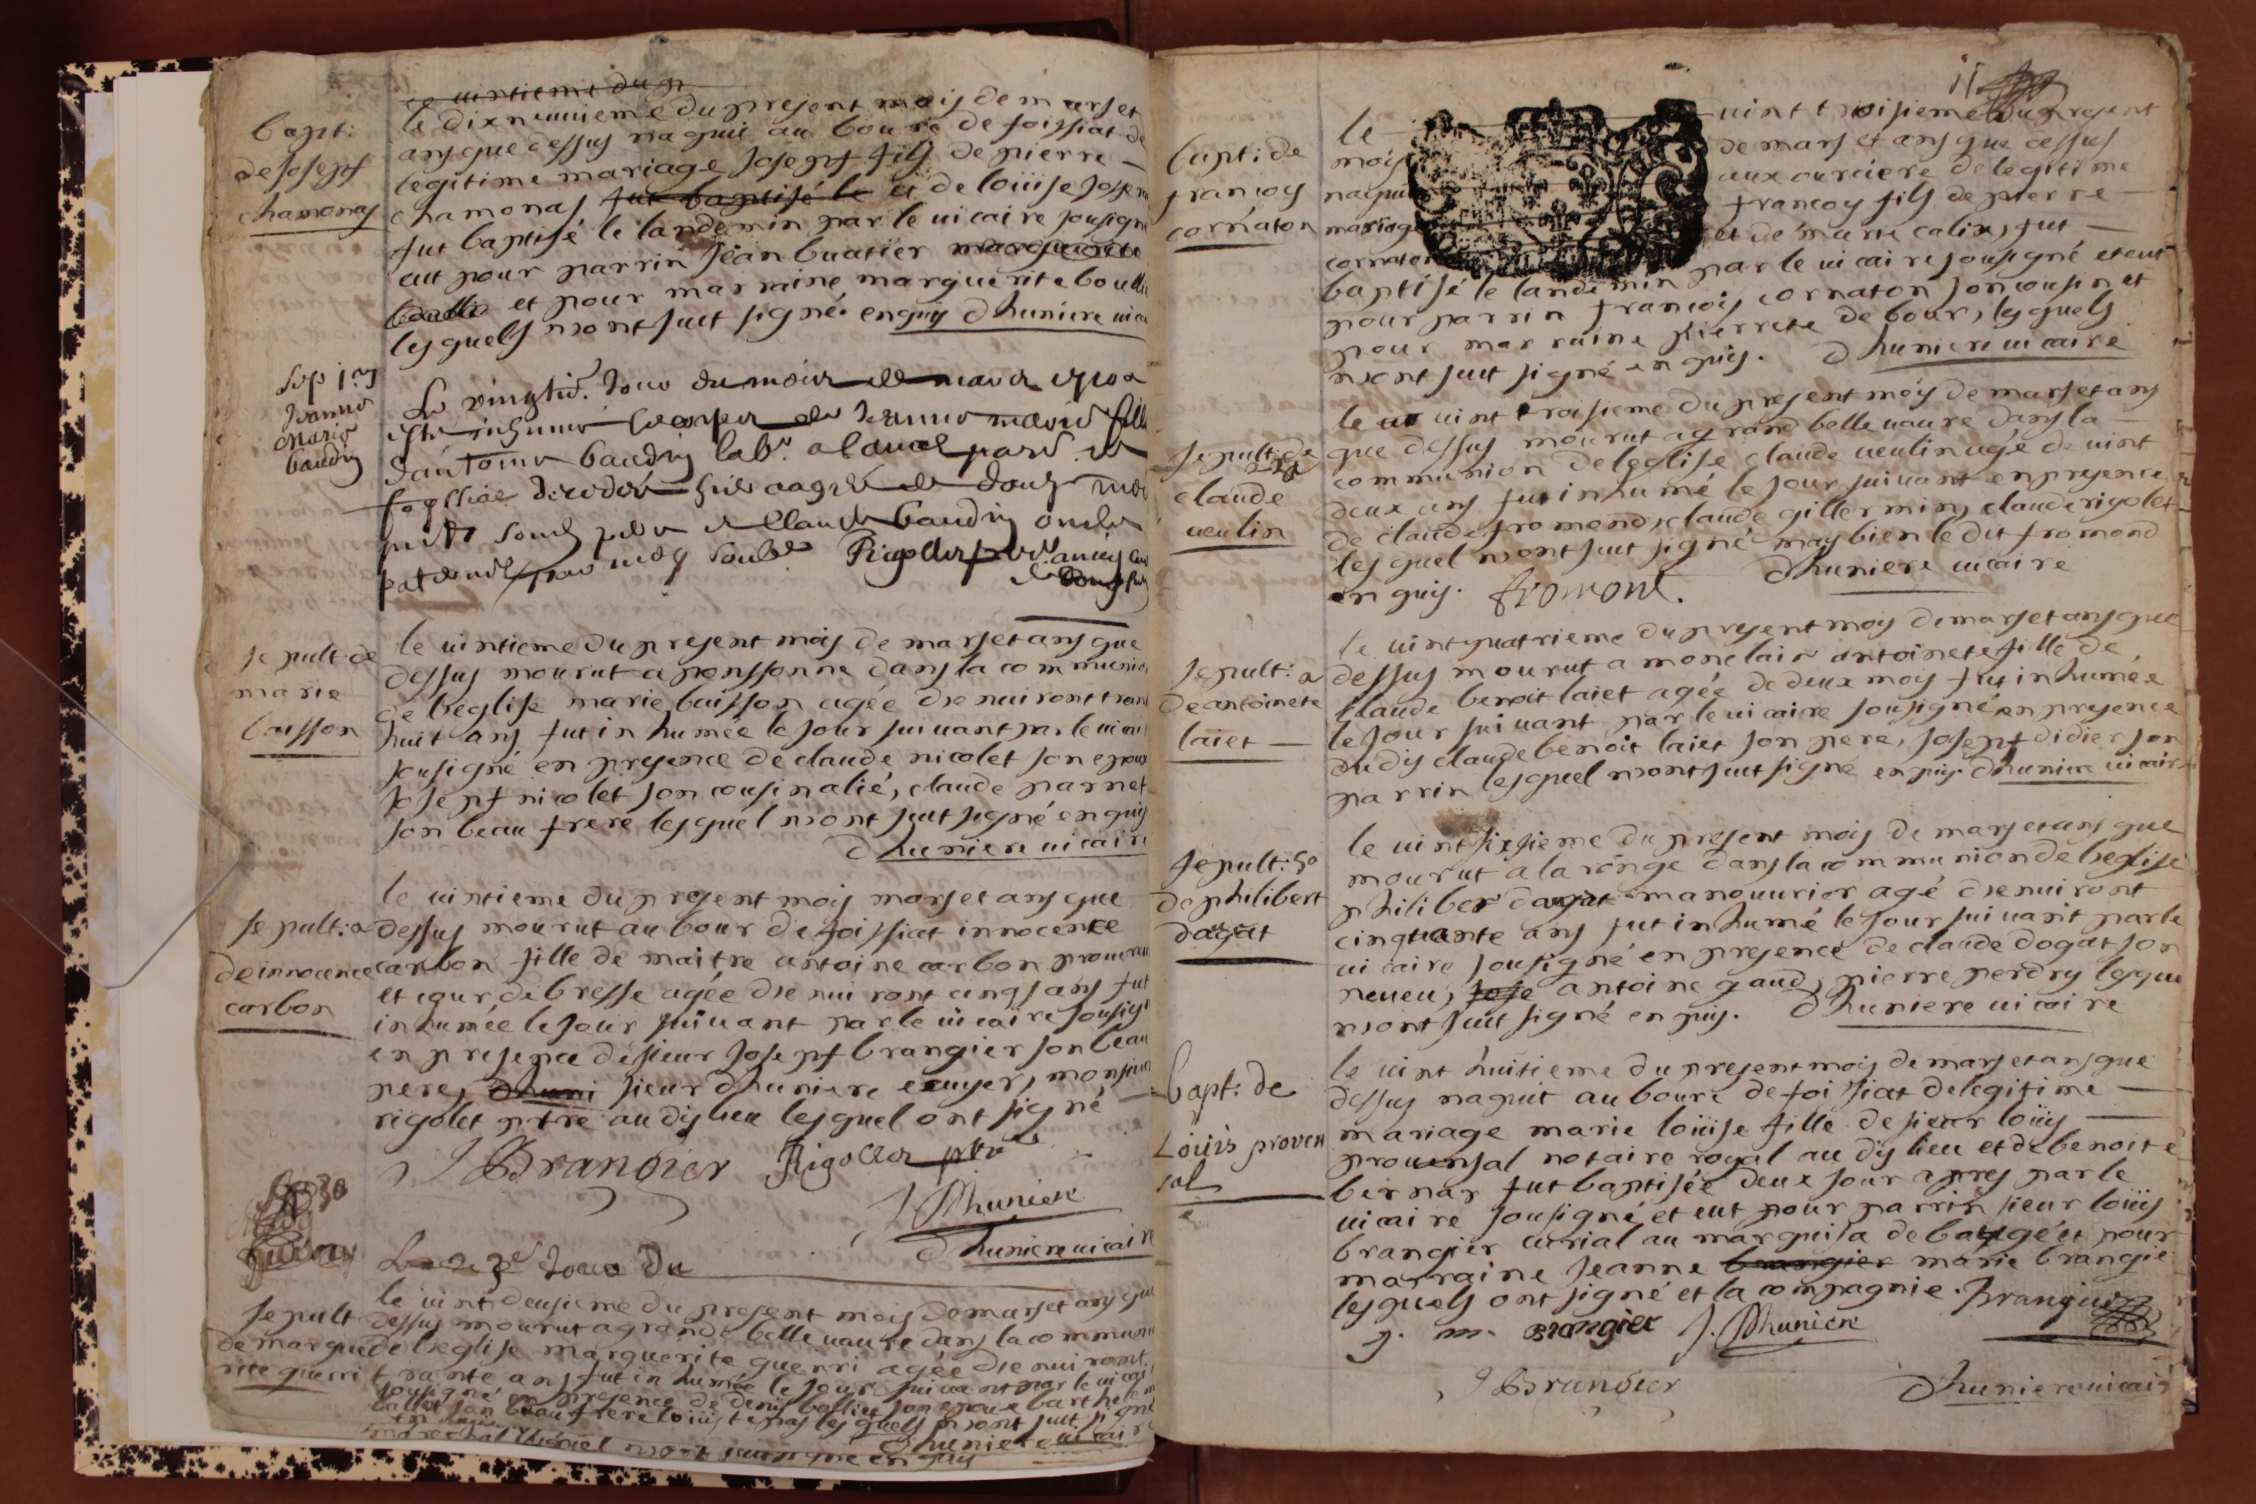 bapt:
de Josepf
chamonas
le vintieme du p
le dixneuvieme du present mois de mars et
ans que dessus naquit au bourc de foissiat de
legitime mariage Josepf fils de pierre
chamonas fut baptisé le et de loüise Josse
fut baptisé le landemin par le vicaire sousigné
eut pour parrin Jean buatier marguerite
et pour marraine marguerite boulli
lesquels n'ont sut signé enquis Dhuniere vica
Sep
Jeanne
Marie
baudin
Le vingtie. Jour du mois de mars 1710 a
esté inhumé le corps de Jeanne marie fille
d'antoine baudin lab. a
foyssiac decedée hier aagée de
pnts pere et Claude baudin oncle
paternel par moy soubs. Rigollet
sepult: de
marie
buisson
le vintieme du present mois de mars et ans que
dessus mourut a ponssonne dans la communion
de l'eglise marie buisson agée d'enuiront trant
huit ans fut inhumée le jour suivant par le vicai
sousigné en presence de claude nicolet son epoux
Josepf nicolet son cousin alié, claude parnet
son beau frere lesquel n'ont sut signé enquis
Dhuniere vicaire
sepult:
de innocence
carbon
le vintieme du present mois mars et ans que
dessus mourut au bour de foissiat innocente
carbon fille de maitre antoine carbon procureu
et cour de bresse agée d'enuiront cinqs ans fut
inhumée le jour suivant par le vicaire sousigné
en presence de sieur Josepf brangier son beau
pere, dhuni sieur dhuniere ecuyer, monsieur
rigolet ptre au dis lieu lesquel ont signé
J Brangier Rigollet ptre
J Dhuniere
Dhuniere vicaire
Le 22e Jour Du
sepult
de margue
rite guerri
le vint deusieme du present mois de mars et ans que
dessus mourut a grande belle vavre dans la commun
de l'eglise marguerite guerri agée d'enuiront
trante ans fut inhumée le jour suivant par le vicai
sousigné en presence de denis bollier son epoux barthele
ballet son beau frere loüis lesquels n'ont sut signé
Dhuniere vicaire
11
bapt: de
francoy
cornaton
le vint troisieme du present
mois de mars et ans que dessus
naquit aux curciere de legitime
mariage francoy fils de pierre
cornaton et de marie calix, fut
baptisé le landemin par le vicaire sousigné et eut
pour parrin francois cornaton son cousin et
pour marraine pierrete de bour, lesquels
n'ont sut signé enquis. Dhuniere vicaire
sepult: de
claude
veulin
le vint troisieme du present mois de mars et ans
que dessus mourut a grand belle vavre dans la
communion de l'eglise claude veulin agé de vint
deux ans fut inhumé le jour suivant en presence
de claude fromond, claude gillermin, claude rigolet
lesquel n'ont sut signé mais bien le dit fromond
enquis. fromont. Dhuniere vicaire
sepult:
de antoinete
laiet
le vint quatrieme du present mois de mars et ans que
dessus mourut a monclair antoinete fille de
claude benoit laiet agée de deux mois fut inhumée
le jour suivant par le vicaire sousigné en presence
du dis claude benoit laiet son pere, Josepf didier son
parrin lesquel n'ont sut signé enquis. Dhuniere vicaire
sepult: 50
de philibert
dagat
le vint sixsieme du present mois de mars et ans que
mourut a la ronge dans la communion de l'eglise
philiber dagat manouurier agé d'enuiront
cinquante ans fut inhumé le jour suivant par le
vicaire sousigné en presence de claude dogat son
neueu, Jose antoine gaud, pierre perdry lesque
n'ont sut signé enquis. Dhuniere vicaire
bapt: de
Loüis proven
sal
le vint huitieme du present mois de mars et ans que
dessus naquit au bourc de foissiat de legitime
mariage marie loüise fille de sieur loüis
prouensal notaire royal au dis lieu et de benoite
bernar fut baptisée deux jour apres par le
vicaire sousigné et eut pour parrin sieur loüis
brangier curial au marquisa de baugé et pour
marraine Jeanne brangier marie brangie
lesquels ont signé et la compagnie. Brangier
j. m. Brongier J. Dhuniere
J Brangier Dhuniere vicair